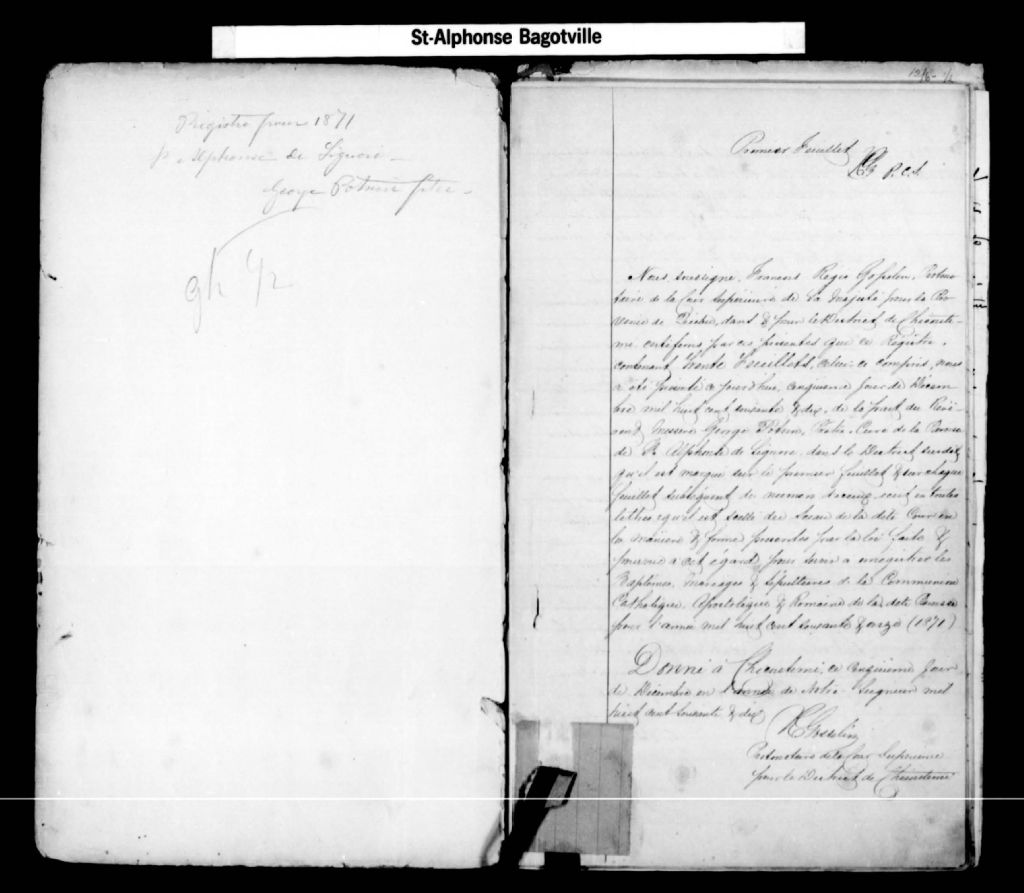 St-Alphonse Bagotville
Registre pour 1871
St Alphonse de Liguori
George Potvin ptre
Premier Feuillet
P.C.S.
Nous soussigné, Francois Regis Gosselin, Protono
taire de la Cour Supérieure de Sa Majesté pour la Pro
vince de Québec, dans & pour le District de Chicouti
mi certifions par ces présentes que ce Registre,
contenant Trente Feuillets, celui-ci compris, nous
a été présenté ce jourd'hui, cinquième jour de Décem
bre mil huit cent soixante & dix, de la part du Révé
rend Messire George Potvin, Prêtre, Curé de la Paroisse
de St Alphonse de Liguori, dans le District susdit
qu'il est marqué sur le premier feuillet & sur chaque
feuillet subséquent du numero écrit en toutes
lettres & qu'il est scellé du Sceau de la dite Cour en
la manière & forme prescrites par la loi faite &
pourvue à cet égard, pour servir à enregistrer les
Baptêmes, Mariages & Sépultures de la Communion
Catholique, Apostolique & Romaine de la dite Paroisse
pour l'année mil huit cent soixante & onze (1871)
Donné à Chicoutimi, ce cinquième jour
de Décembre en l'année de Notre Seigneur mil
huit cent soixante & dix
Gosselin
Protonotaire de la Cour Supérieure
pour le District de Chicoutimi